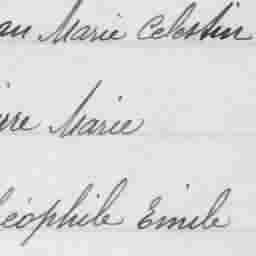 an Marie Celestin
erre Marie
éophile Emile